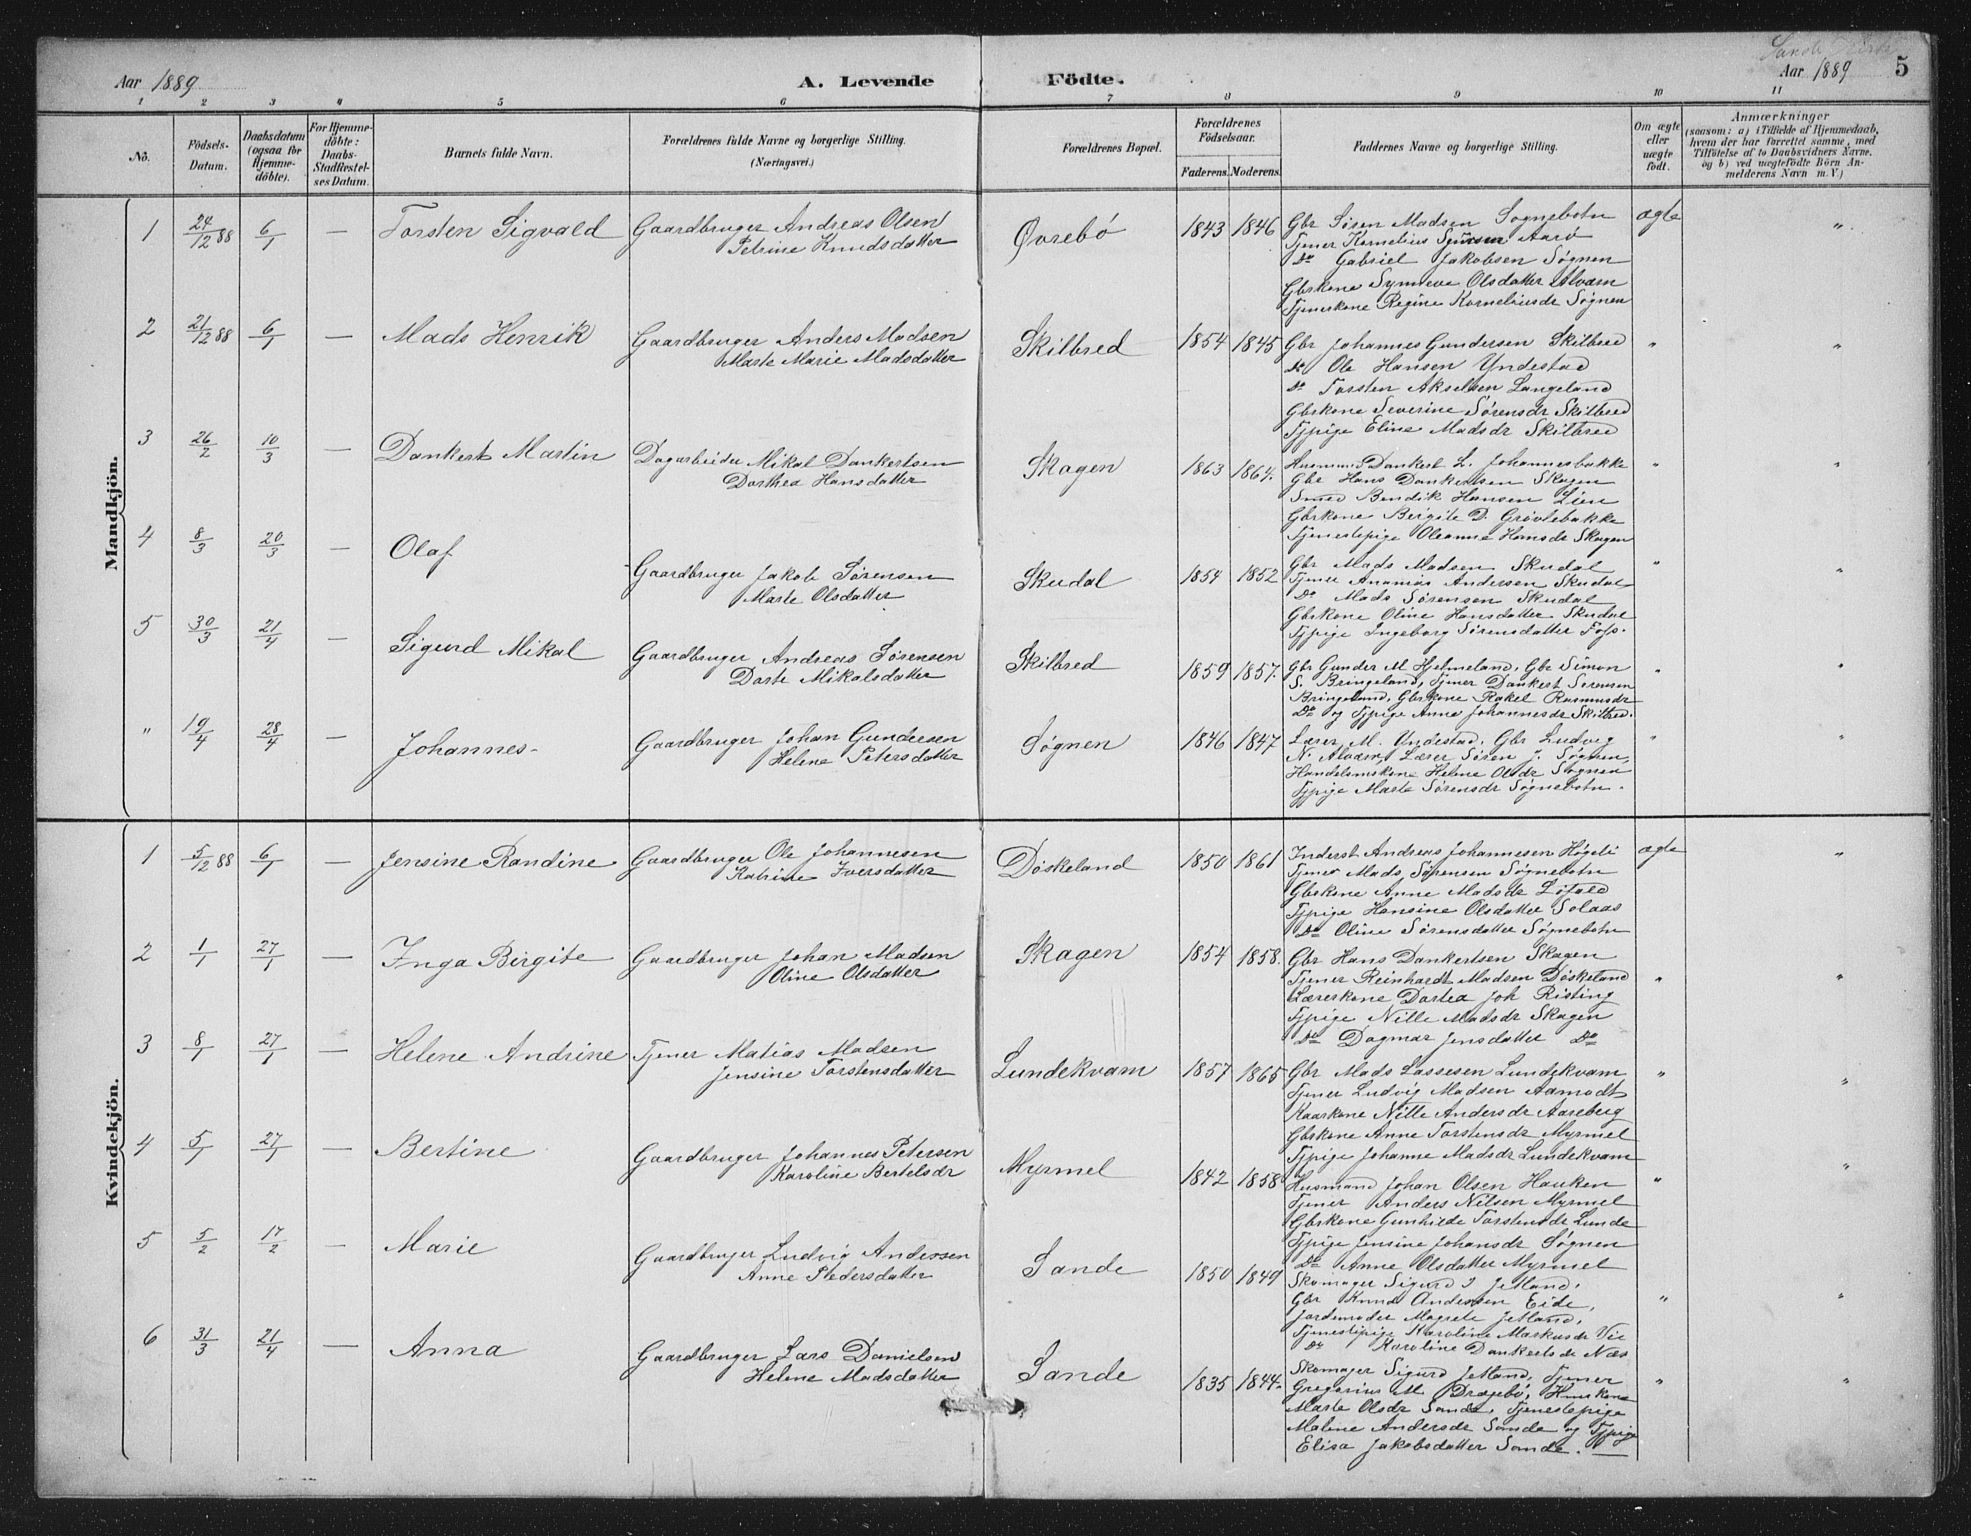 Sande
Aar 1889
A. Levende
Födte.
Aar 1889
5
1 2 3 4 5 6 7 8 9 10 11
No.
Födsels-Datum.
Daabsdatum (ogsaa for Hjemmedöbte).
For Hjemmedöbte: Daabs-Stadfæstelses Datum.
Barnets fulde Navn.
Forældrenes fulde Navne og borgerlige Stilling. (Næringsvei.)
Forældrenes Bopæl.
Forældrenes Födselsaar.
Faderens. Moderens.
Faddernes Navne og borgerlige Stilling.
Om ægte eller uægte födt.
Anmærkninger
(saasom: a) i Tilfælde af Hjemmedaab, hvem der har forrettet samme, med Tilföielse af to Daabsvidners Navne, og b) ved uægtefödte Börn Anmelderens Navn m. V.)
Mandkjön.
1 24/12 88 6/1 — Torsten Sigvald
Gaardbruger Andreas Olsen
Petrine Knudsdatter
Øvrebø 1843 1846
Gbr Søren Madsen Sognebotn
Tjener Kornelius Aarø
Do Gabriel Jakobsen Søgnen
Gbrkone Synneve Olsdatter Alværn
Tjenerkone Regine Korneliusdr Søgnen
ægte "
2 21/12 88 6/1 — Mads Henrik
Gaardbruger Anders Madsen
Marte Marie Madsdatter
Skilbred 1854 1845
Gbr Johannes Gundersen Skilbred
Do Ole Hansen Yndestad
Do Torsten Akselsen Langeland
Gbrkone Severine Sørensdr Skilbred
Tjpige Eline Madsdr Skilbred
" "
3 26/2 10/3 — Dankert Martin
Dagarbeider Mikal Dankertsen
Dorthea Hansdatter
Skagen 1863 1864.
Husmand Dankert L. Johannesbakke
Gbr Hans Dankertsen Skagen
Smed Bendik Hansen Lien
Gbrkone Bergite D. Grøvlebakke
Tjenestepige Oleanne Hansdr Skagen
" "
4 8/3 20/3 — Olaf
Gaardbruger Jakob Sørensen
Marte Olsdatter
Skudal 1854 1852
Gbr Mads Madsen Skudal
Tjener Ananias Andersen Skudal
Do Mads Sørensen Skudal
Gbrkone Oline Hansdatter Skudal
Tjpige Ingeborg Sørensdatter Foss.
" "
5 30/3 21/4 — Sigurd Mikal
Gaardbruger Andreas Sørensen
Dorte Mikalsdatter
Skilbred 1859 1857.
Gbr Gunder M Hjelmeland, Gbr Simon
S. Bringeland, Tjener Dankert Sørensen
Bringeland, Gbrkone Rakel Rasmusdr
Do og Tjpige Anna Johannesdr Skilbred.
" "
" 19/4 28/4 — Johannes
Gaardbruger Johan Gundersen
Helene Petersdatter
Søgnen 1846 1847
Lærer M. Undestad, Gbr Ludvig
N. Alværn, Lærer Søren J. Søgnen,
Handelsmskone Helene Olsdr Søgnen
Tjpige Marte Sørensdr Søgnebotn.
" "
Kvindekjön.
1 5/12 88 6/1 — Jensine Randine
Gaardbruger Ole Johannesen
Katrine Iversdatter
Døskeland 1850 1861
Inderst Andreas Johannesen Høgeli
Tjener Mads Sørensen Søgnebotn
Gbrkone Anne Madsdr Løfald
Tjpige Hansine Olsdatter Solaas
Do Oline Sørensdatter Søgnebotn
ægte "
2 1/1 27/1 — Inga Birgite
Gaardbruger Johan Madsen
Oline Olsdatter
Skagen 1854 1858.
Gbr Hans Dankertsen Skagen
Tjener Reinhardt Madsen Døskeland
Lærerkone Dortea Joh Risting
Tjpige Nille Madsdr Skagen
Do Dagmar Jensdatter Do
" "
3 8/1 27/1 — Helene Andrine
Tjener Matias Madsen
Jensine Torstensdatter
Lundekvam 1857 1865
Gbr Mads Lassesen Lundekvam
Tjener Ludvig Madsen Aamodt
Kaarkone Nille Andersdr Aareberg
Gbrkone Anne Torstensdr Myrmel
Tjpige Johanne Madsdr Lundekvam
" "
4 5/1 27/1 — Bertine
Gaardbruger Johannes Petersen
Karoline Bertelsdr
Myrmel 1842 1858
Husmand Johan Olsen Hauken
Tjener Anders Nilsen Myrmel
Gbrkone Gunhilde Torstensdr Lunde
Tjpige Jensine Johansdr Søgnen
Do Anne Olsdatter Myrmel
" "
5 5/2 17/2 — Marie
Gaardbruger Ludvig Anderssen
Anne Pedersdatter
Sande 1850 1849
Skomager Sigurd J Jetland,
Gbr Knud Andersen Eide,
Jordemoder Magrete Jetland,
Tjenestepige Karoline Markusdr Vie
Do Karoline Dankertsdr Næs
" "
6 31/3 21/4 — Anna
Gaardbruger Lars Danielsen
Helene Madsdatter
Sande 1835 1844.
Skomager Sigurd Jetland, Tjener
Gregorius M. Drægebø, Huuskone
Marte Olsdr Sande, Tjenestepige
Malene Andersdr Sande og Tjpige
Elisa Jakobsdatter Sande.
" "